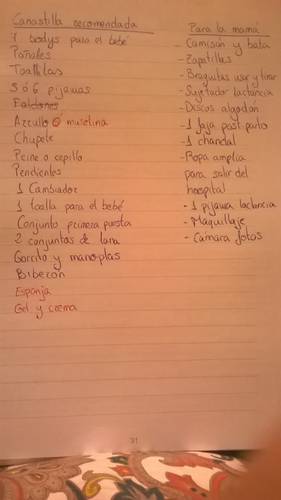 Canastilla recomendada
7 bodys para el bebé
Pañales
Toallitas
5 ó 6 pijamas
Faldones
Arrullo ó muselina
Chupete
Peine o cepillo
Pendientes
1 Cambiador
1 toalla para el bebé
Conjunto primera puesta
2 conjuntos de lana
Gorrito y manoplas
Biberón
Esponja
Gel y crema
Para la mamá
- Camisón y bata
- Zapatillas
- Braguitas usar y tirar
- Sujetador lactancia
- Discos algodón
- 1 faja post parto
- 1 chandal
- Ropa amplia
para salir del
hospital
- 1 pijama lactancia
- Maquillaje
- Cámara fotos
31